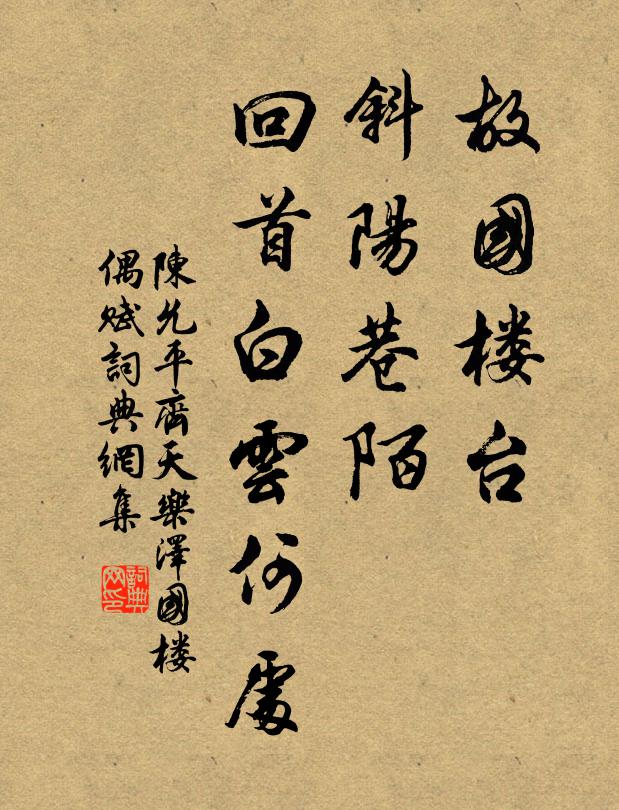 故國楼台
斜陽巷陌
回首白雲何處
陳允平齊天樂澤國楼
偶賦詞典網集
詞典
网印